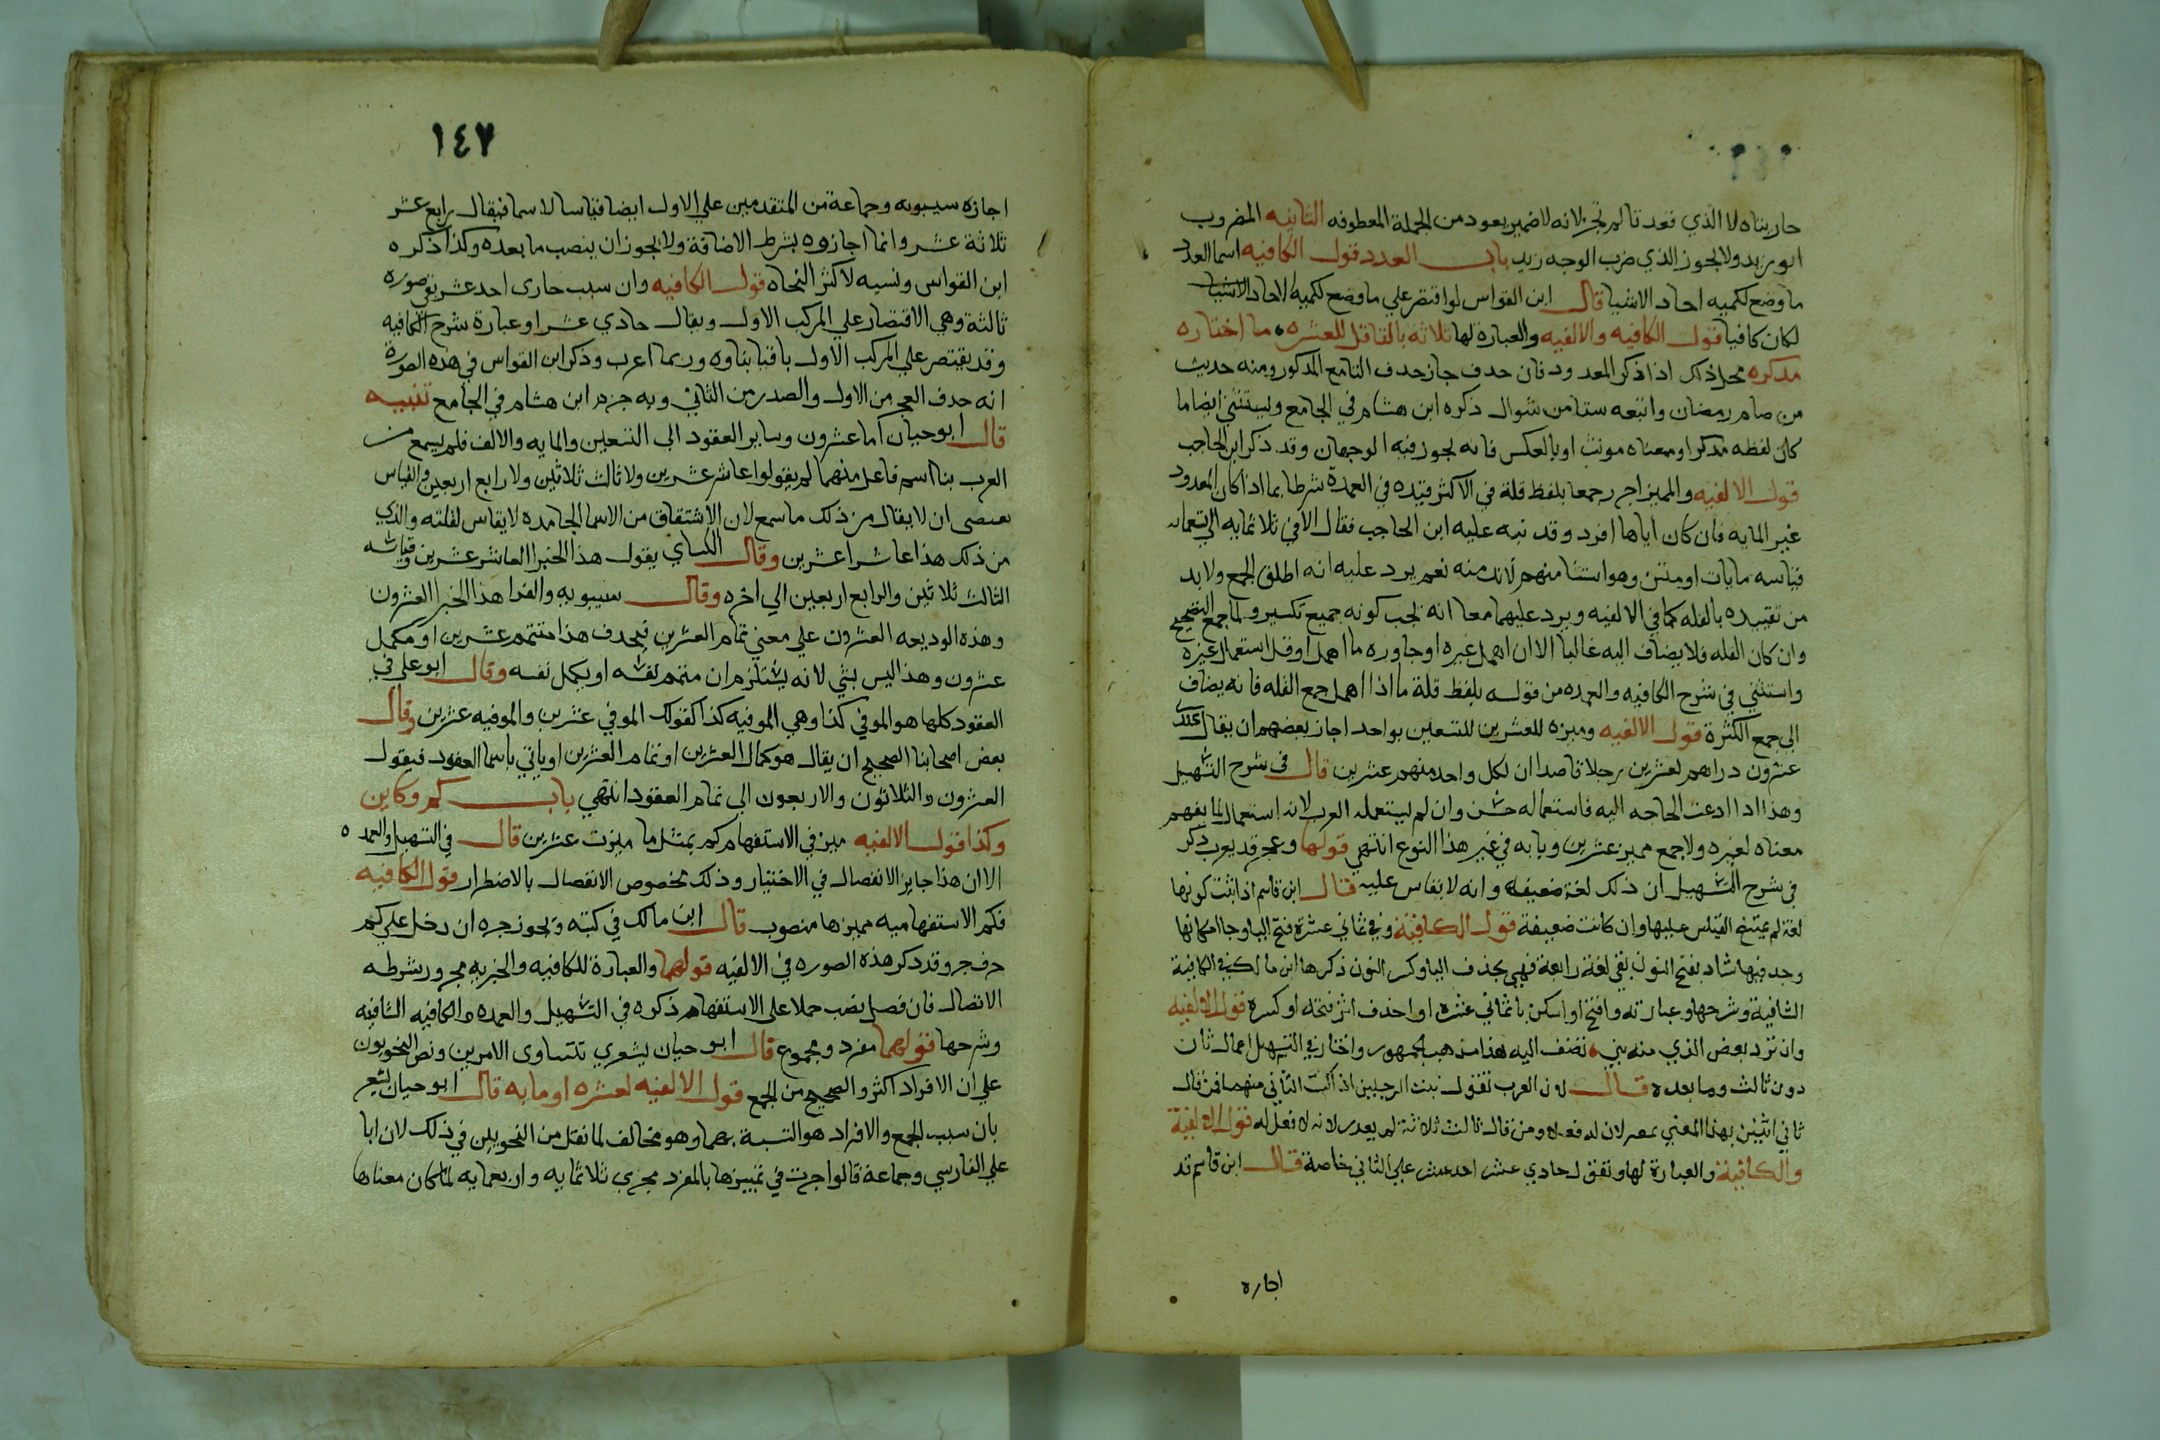 جاريتاه لا الذي قعدتا لم تجز لانه لا ضمير يعود من الجملة المعطوفه الثانيه المضروب
ابو زيد ولا يجوز الذي ضرب الوجه زيد باب العدد قول الكافيه اسما العدد
ما وضع لكميه احاد الاشيا قال ابن القواس لو اقتصر علي ما وضع لكميه الاحاد الاشيا
لكان كافيا قول الكافيه والالفيه والعباره لها ثلاثه بالتا قل للعشره ما احاده
مذكره محل ذلك اذا ذكر المعدود فان حذف جاز حذف التا مع المذكور ومنه حديث
من صام رمضان واتبعه ستا من شوال ذكره ابن هشام في الجامع ويستثني ايضا ما
كان لفظه مذكرا ومعناه مونث او بالعكس فانه يجوز فيه الوجهان وقد ذكر ابن الحاجب
قول الالفيه والمميز اجرر جمعا بلفظ قلة في الاكثر قيده في العمدة شرطا بما اذا كان المعدود
غير المايه فان كان اياها افرد وقد نبه عليه ابن الحاجب فقال الا في ثلاثمايه الي تسعمايه
قياسه مايات او مئين وهو استثنا منهم لانه منه نعم يرد عليه انه اطلق الجمع ولا بد
من تقييده بالقله كما في الالفيه ويرد عليهما معا انه يجب كونه جمع تكسير واما جمع التصحيح
وان كان القله فلا يضاف اليه غالبا الا ان اهمل غيره او جاوره ما اهمل او قل استعمال غيره
واستثني في شرح الكافيه والعمده من قوله بلفظ قلة ما اذا اهمل جمع القله فانه يضاف
الي جمع الكثرة قول الالفيه وميزه للعشرين للتسعين بواحد اجاز بعضهم ان يقال عندي
عشرون دراهم لعشرين رجلا قاصدا ان لكل واحد منهم عشرين قال في شرح التسهيل
وهذا اذا دعت الحاجه اليه فاستعماله حسن وان لم يستعمله العرب لانه استعمال لما يفهم
معناه لغيره ولا جمع مميز عشرين وبابه في غير هذا النوع انتهي قولها وعجز قد يعرب ذكر
في شرح التسهيل ان ذلك لغة ضعيفه وانه لا يقاس عليه قال ابن قاسم اذا ثبت كونها
لغة لم يمتنع القياس عليها وان كانت ضعيفة قول الكافيه وفي ثماني عشرة فتح اليا وجا اسكانها
وحذفها شاذ بفتح النون بقي لغة رابعة فهي بحذف اليا وكسر النون ذكرها ابن مالك في الكافية
الشافية وشرحها وعبارته وافتح او اسكن يا ثماني عشره او احذف اثر فتحة او كسرة قول الالفيه
وان ترد بعض الذي منه بني تضف اليه هذا مذهب الجمهور واختار في التسهيل اعمال ثان
دون ثالث وما بعده قال لان العرب تقول ثنيت الرجلين اذا كنت الثاني منهما فمن قال
ثاني اثنين بهذا المعني لان له فعلا ومن قال ثالث ثلاثة لم يعذر لانه لا فعل له قول الالفية
والكافية والعبارة لها وتفق لحادي عشر احد عشر علي الثاني خاصة قال ابن قاسم قد
اجازه
١٤٧
اجازه سيبويه وجماعة من المتقدمين علي الاول ايضا قياسا لا سما فيقال رابع عشر
ثلاثة عشر وانما اجازوه بشرط الاضافة ولا يجوز ان ينصب ما بعده وكذا ذكره
ابن القواس ونسبه لاكثر النحاه قول الكافيه وان سبب حاري احد عشر بقي صوره
ثالثة وهي الاقتصار علي المركب الاول ويقال حادي عشر او عبارة شرح الكافيه
وقد يقتصر علي المركب الاول باقيا بناوه وربما اعرب وذكر ابن القواس في هذه الصورة
انه حذف العجز من الاول والصدر من الثاني وبه جزم ابن هشام في الجامع تنبيه
قال ابو حيان اما عشرون وساير العقود الي التسعين والمايه والالف فلم يسمع من
العرب بنا اسم فاعل منهما لم يقولوا عاشر عشرين ولا ثالث ثلاثين ولا رابع اربعين والقياس
يقتضي ان لا يقال من ذلك ما سمع لان الاشتقاق من الاسما الجامده لا يقاس لقلته والذي
من ذلك هذا عاشرا عشرين وقال الكساي يقول هذا الخبر العاشر عشرين وقياسه
الثالث ثلاثين والرابع اربعين الي اخره وقال سيبويه والفرا هذا الخبر العشرون
وهذه الوديعه العشرون علي معني تمام العشرين فيحذف هذا متمم عشرين او مكمل
عشرون وهذا ليس بشي لانه يستلزم ان متمم نفسه او يكمل نفسه وقال ابو علي في
العقود كلها هو الموفي كذا وهي الموفيه كذا كقولك الموفي عشرين والموفيه عشرين وقال
بعض اصحابنا الصحيح ان يقال هو كمال العشرين او تمام العشرين او ياتي باسما العقود فيقول
العشرون والثلاثون والاربعون الي تمام العقود انتهي باب كم وكاين
وكذا قول الالفيه ميز في الاستفهام كم بمثل ما ميزت عشرين قال في التسهيل والعمده
الا ان هذا جايز الانفصال في الاختيار وذلك مخصوص الانفصال بالاضطرار قول الكافيه
فكم الاستفهاميه مميزها منصوب قال ابن مالك في كتبه ويجوز جره ان دخل علي كم
حرف جر وقد ذكر هذه الصوره في الالفيه قولهما والعبارة للكافيه والخبريه مجرور بشرطه
الاتصال فان فصل نصب حملا علي الاستفهام ذكره في التسهيل والعمده والكافيه الشافيه
وشرحها قولهما مفرد ومجموع قال ابو حيان يشعري تتساوي الامرين ونص النحويون
علي ان الافراد اكثر والصحيح من الجمع قول الالفيه لعشره او مايه قال ابو حيان يشعر
بان سبب الجمع والافراد هو التشبه بهما وهو مخالف لما نقل من النحويين في ذلك لان ابا
علي الفارسي وجماعة قالوا جرت في تمييزها بالمفرد مجري ثلاثمايه واربعمايه لما كان معناها